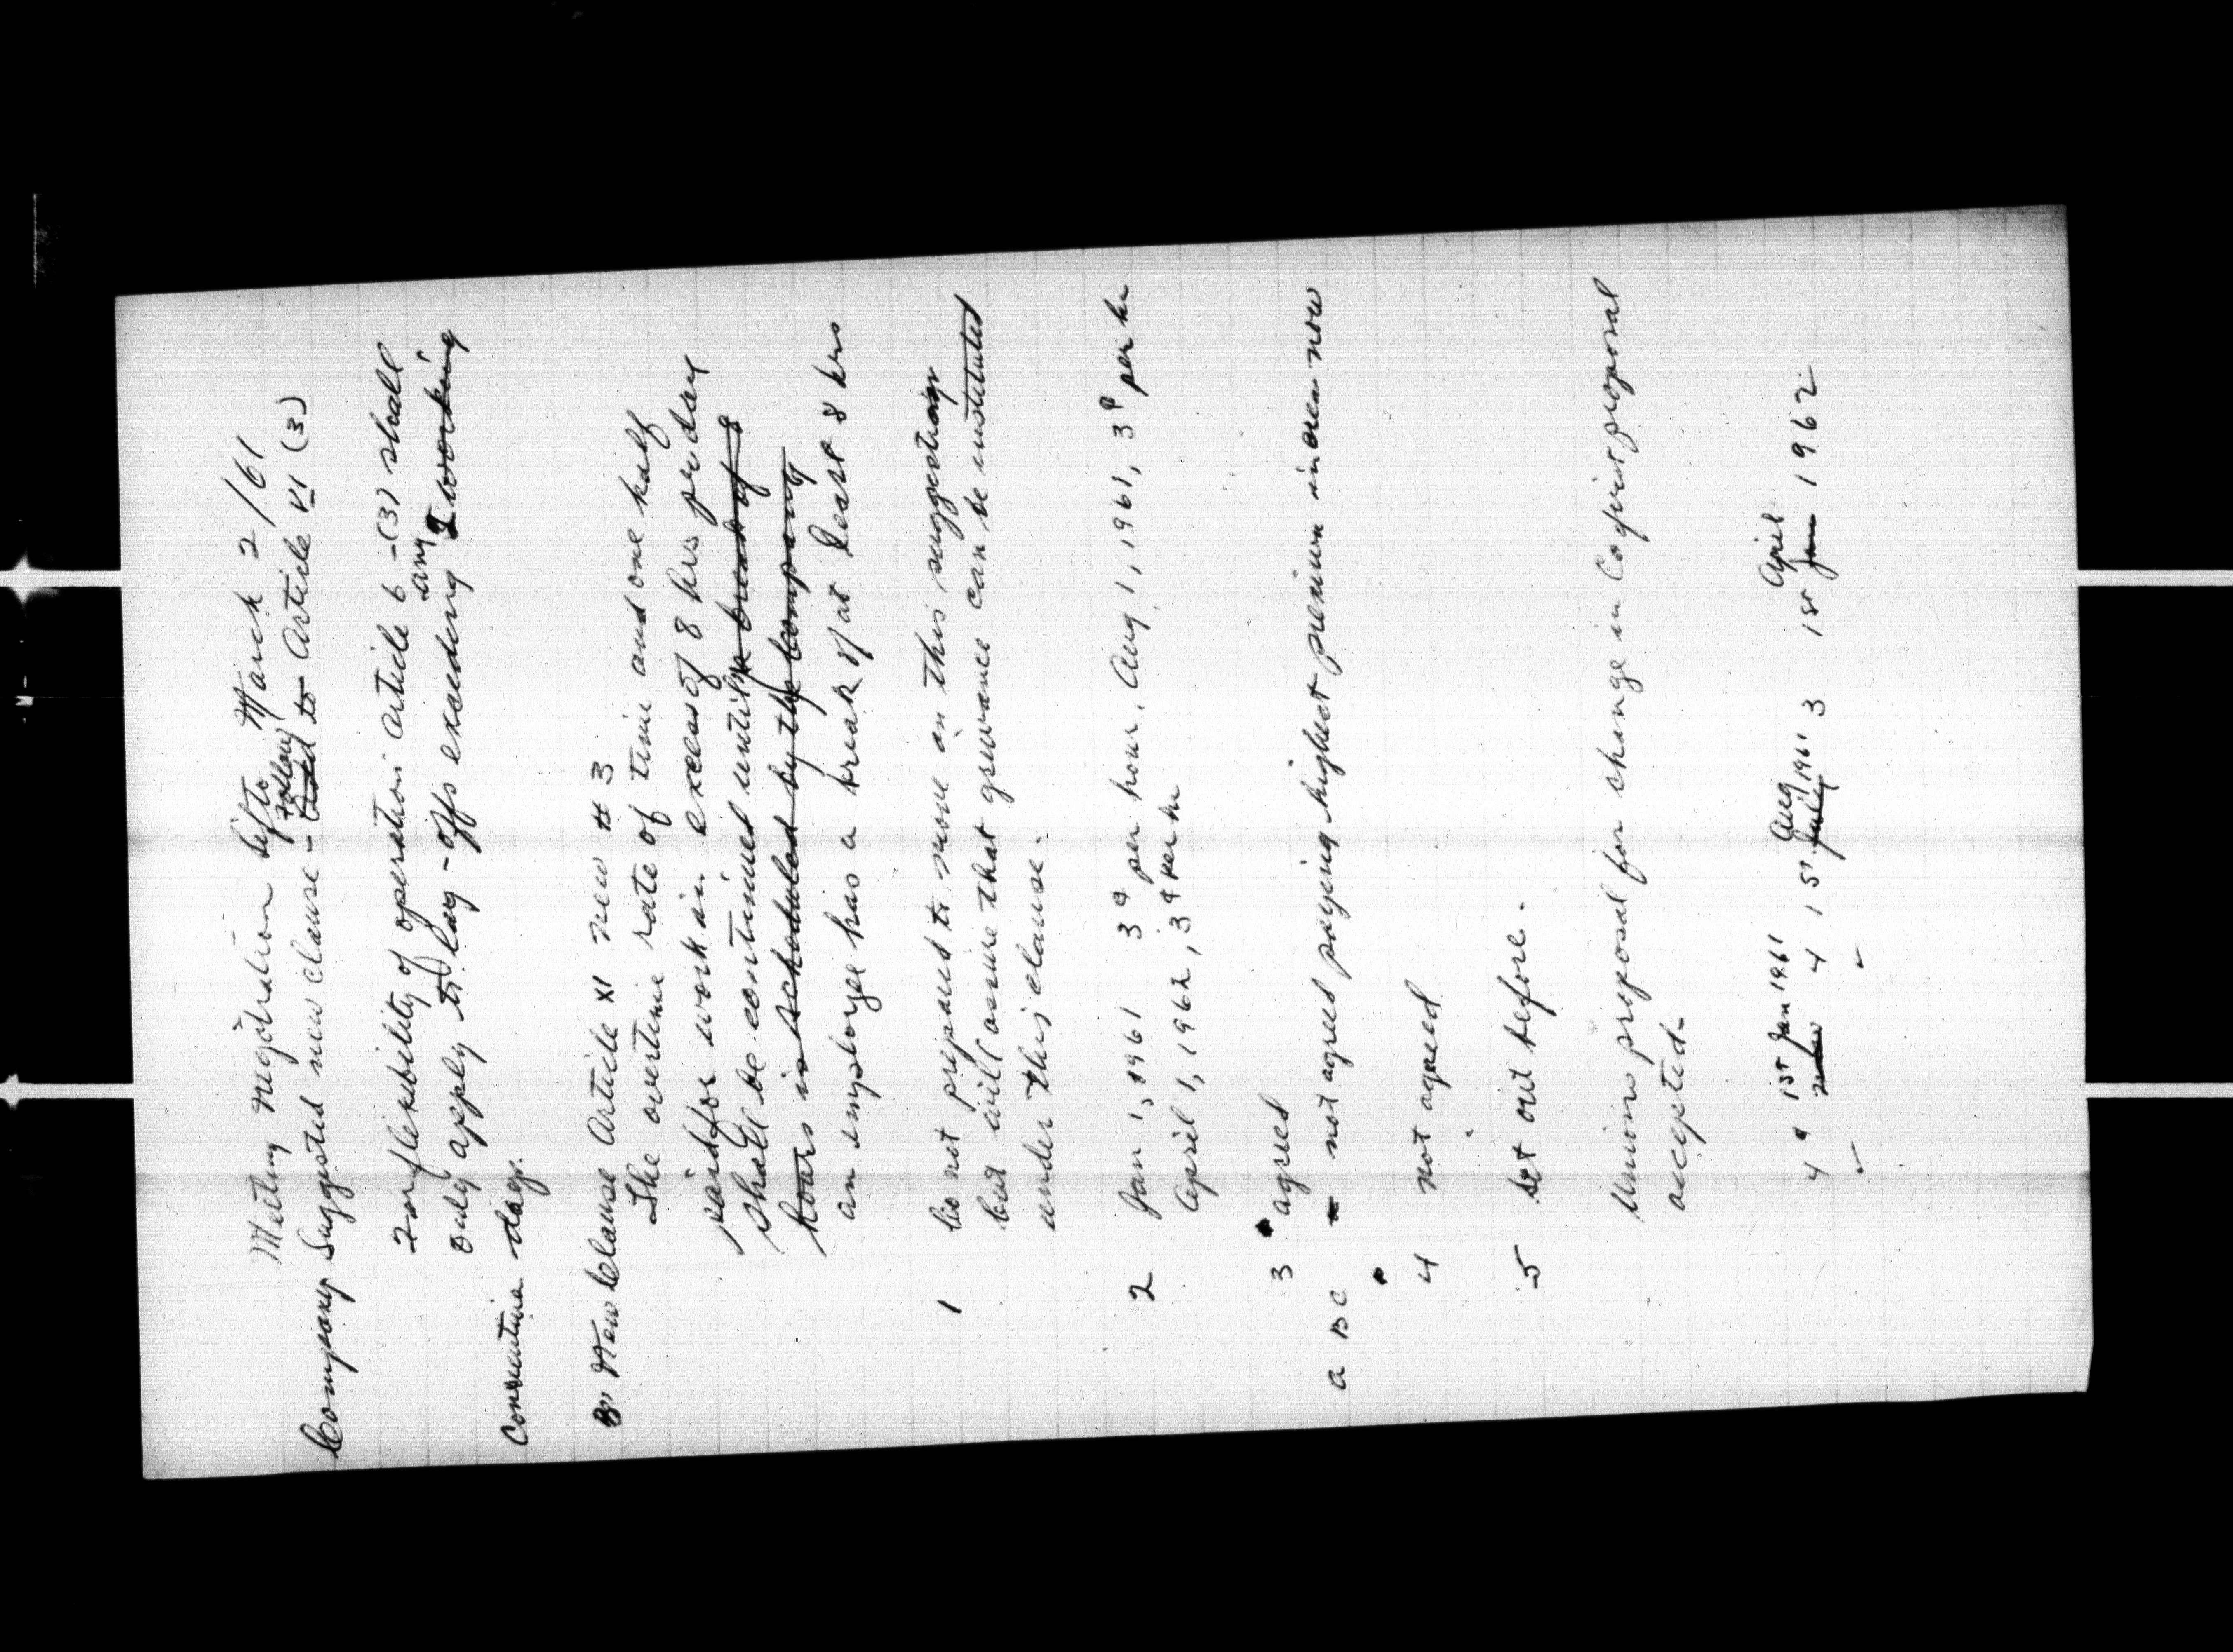 Meeting Negotiation Sifto March 2/61
Company Suggested new clause - follow Add to Article VI (3)
For flexibility of operation Article 6 -(3) shall
only apply to lay-offs exceeding any 2 working
Consecutive days.
B. New Clause Article XI new # 3
The overtime rate of time and one half
paid for work in excess of 8 hrs per day
shall be continued until a break of 8
hours is scheduled by the Company
an employee has a break of at least 8 hrs
1 Co not prepared to move on this suggestion
but will assure that grievance can be instituted
under this clause.
2 Jan 1, 1961 3¢ per hour, Aug 1, 1961, 3¢ per hr
April 1, 1962, 3¢ per hr
3 agreed
a B C - not agreed paying highest premium in area now
4 not agreed
5 set out before.
Unions proposal for change in Co first proposal
accepted.
1st Jan 1961 Aug April
4¢ 4 1st July 1961 3 1st Jan 1962